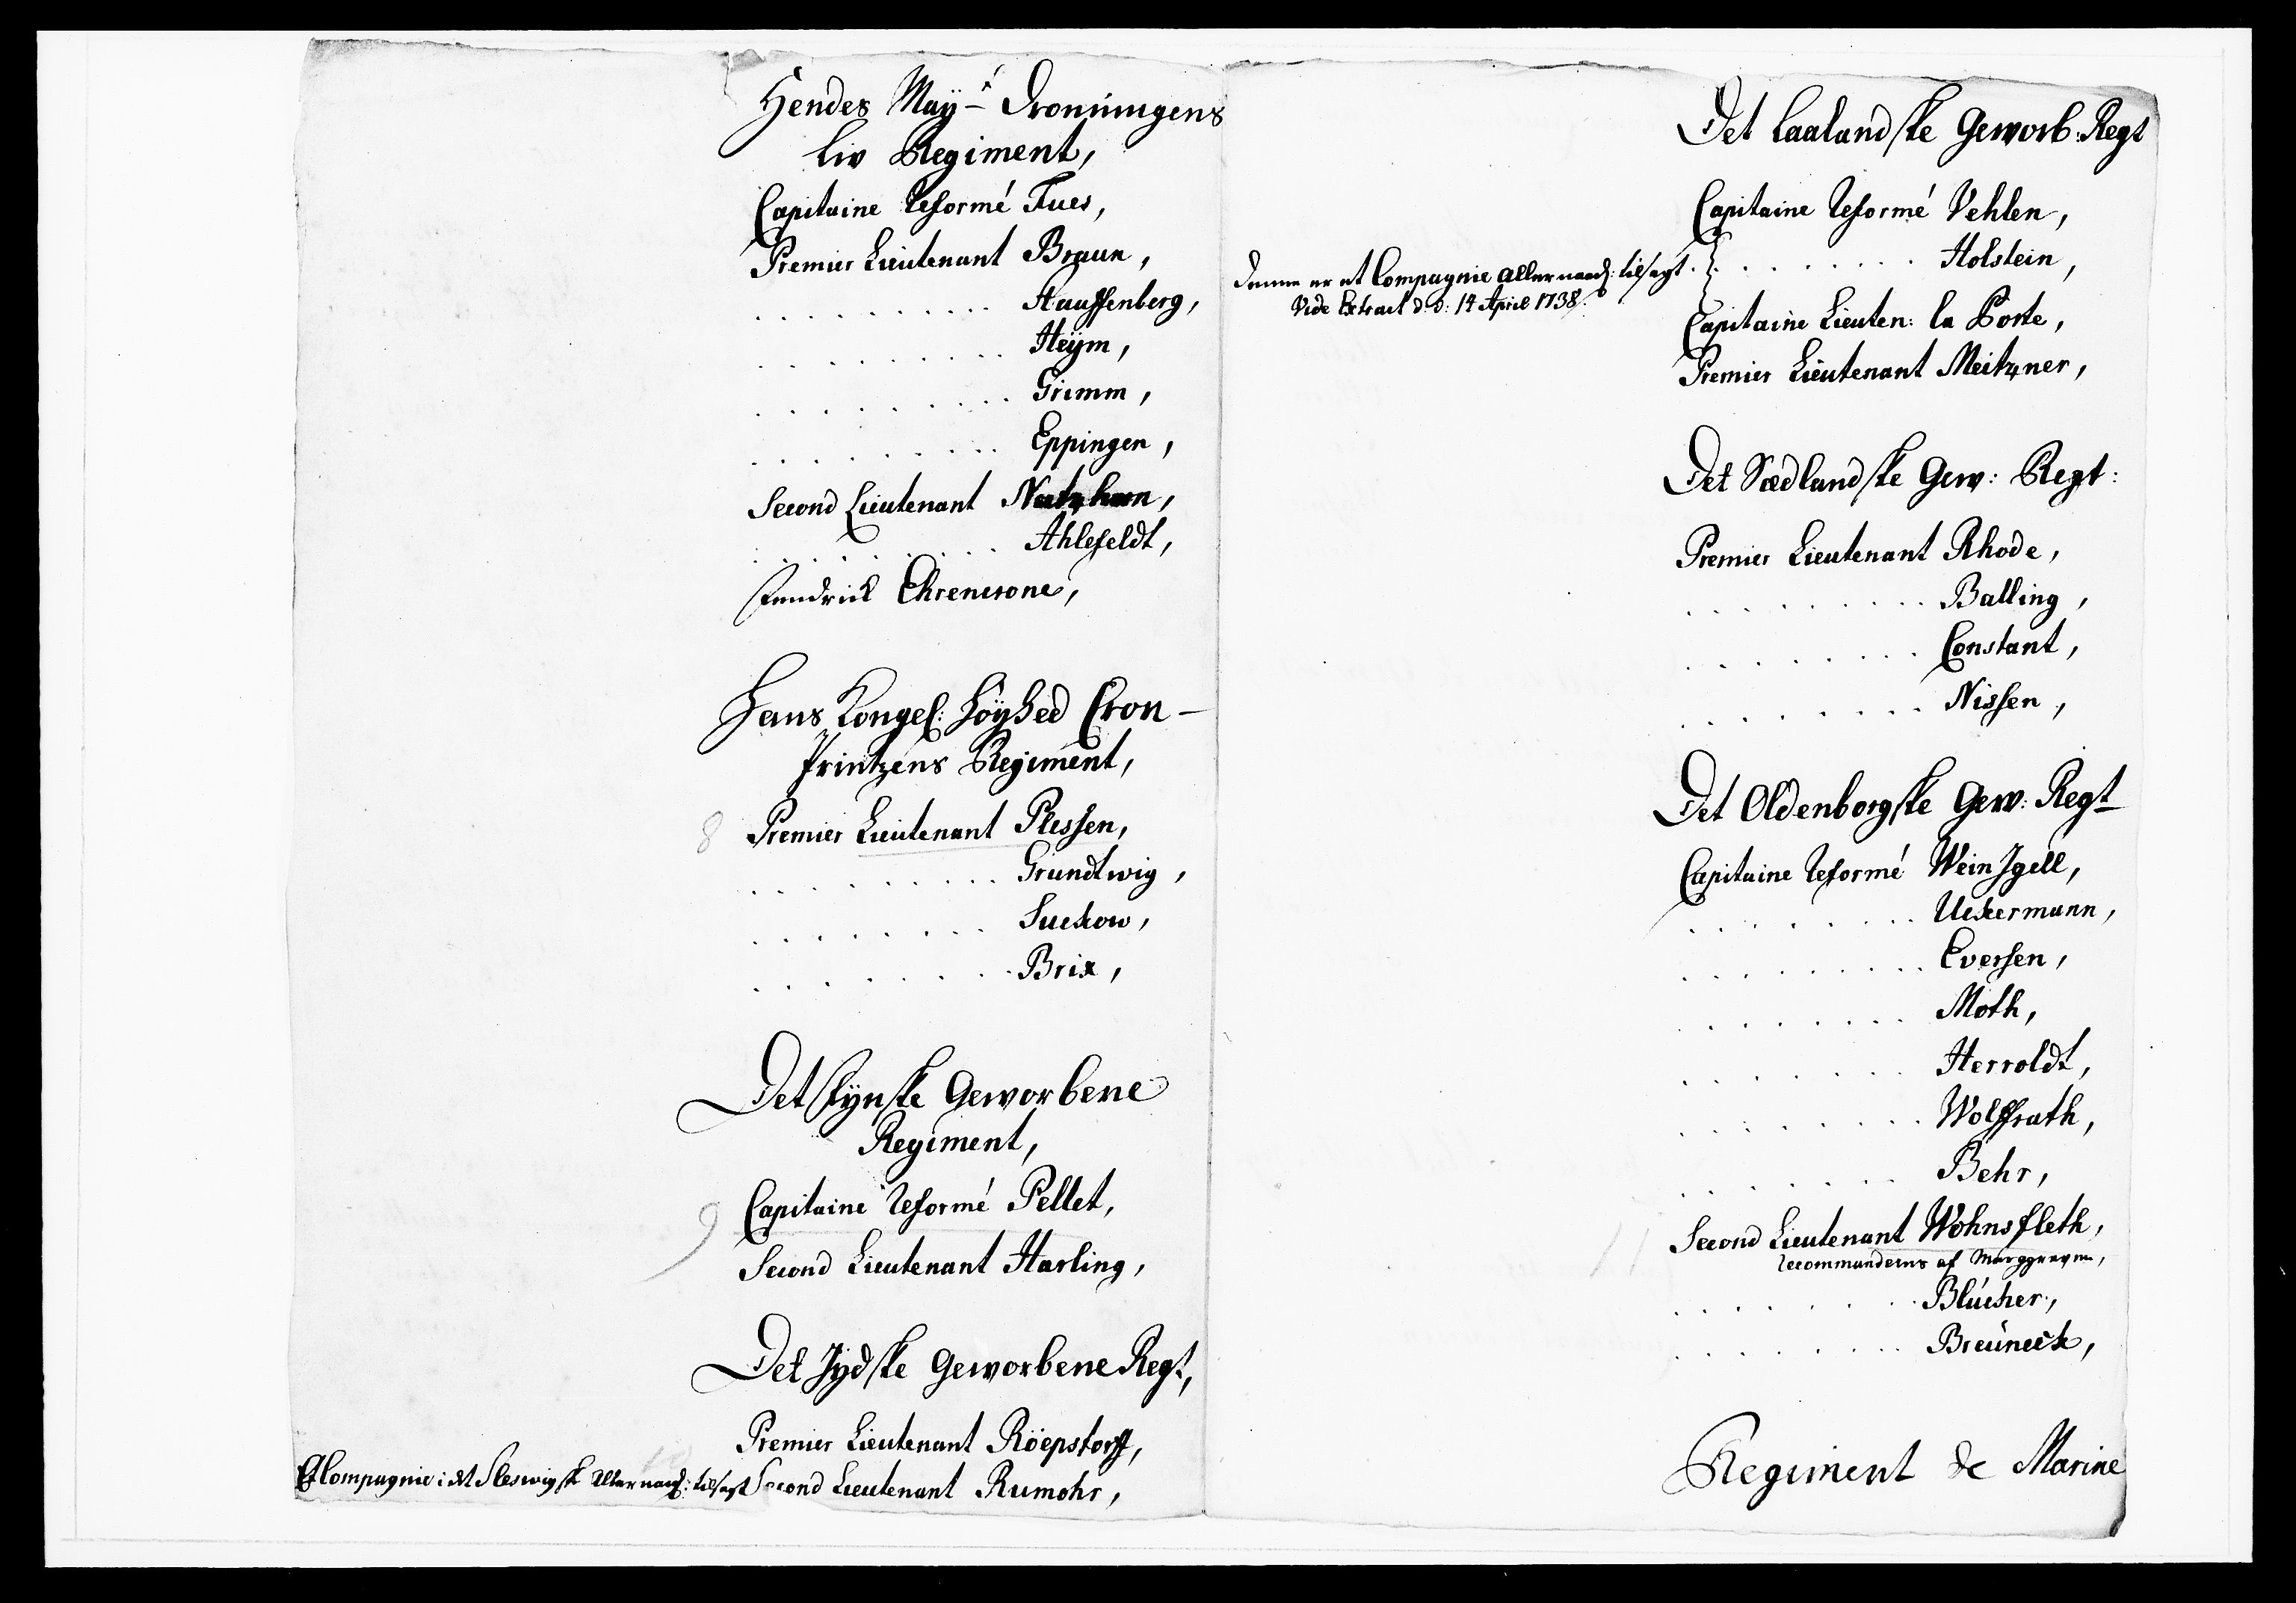 Hendes Maÿ-t Dronningens
Liv Regiment,
Capitaine Reformé Fues,
Premier Lieutenant Braun,
. . . . . . . . . . Stauffenberg,
. . . . . . . . . . Heÿm,
. . . . . . . . . . Grimm,
. . . . . . . . . . Eppingen,
Second Lieutenant
. . . . . . . . . . Ahlefeldt,
Fendrick Ehrencrone,
Hans Kongel: Høyhed Cron-
Printzens Regiment,
8 Premier Lieutenant Plessen,
. . . . . . . . . . Grundtwig,
. . . . . . . . . . Suckow,
. . . . . . . . . . Brix,
Det Fynske Geworbene
Regiment,
9 Capitaine Reformé Pellet,
Second Lieutenant Harling,
Det Jydske Geworbene Regt,
Premier Lieutenant Röepstorff,
Et Compagnie i det Sleswigsk Allernaad: tilsagt Second Lieutenant Rumohr,
Det Laalandske Geworb: Regt
Capitaine Reformé Vehlen,
Denne er et Compagnie Allernaad: tilsagt . . . . . . . . . Holstein,
Vide Extract d: d: 14 April 1738.
Capitaine Lieuten: la Porte,
Premier Lieutenant Meitzner,
Det Sædlandske Gew: Regt:
Premier Lieutenant Rhode,
. . . . . . . . . Balling,
. . . . . . . . . Constant,
. . . . . . . . . Nissen,
Det Oldenborgske Gew: Regt
Capitaine Reformé Wein Jgell,
. . . . . . . . . Uckermann,
. . . . . . . . . Eversen,
. . . . . . . . . Moth,
. . . . . . . . . Herroldt,
. . . . . . . . . Wolffrath,
. . . . . . . . . Behr,
11 Second Lieutenant Wohnsfleth,
recommanderes af Marggraven,
. . . . . . . . . Blücher,
. . . . . . . . . Breüneck,
Regiment de Marine